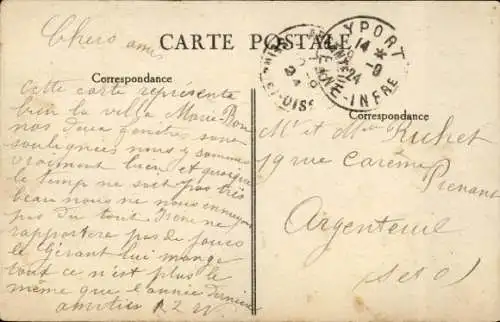 Chers amis
CARTE POSTALE
Correspondance
Cette carte représente
bien la villa Marie-Bon
nos deux fenêtres sont
soulignées nous y sommes
vraiment bien et quoique
le temp ne soit pas très
beau nous ne nous ennuyons
pas du tout Irène ne
rapportera pas de joues
le Gérant lui mange
tout ce n'est plus le
même que l'année dernière
amitiés
YPORT
14 * 9
24
Correspondance
Mr et Mme Ruhet
19 rue Carême
Prenant
Argenteuil
(S et O)